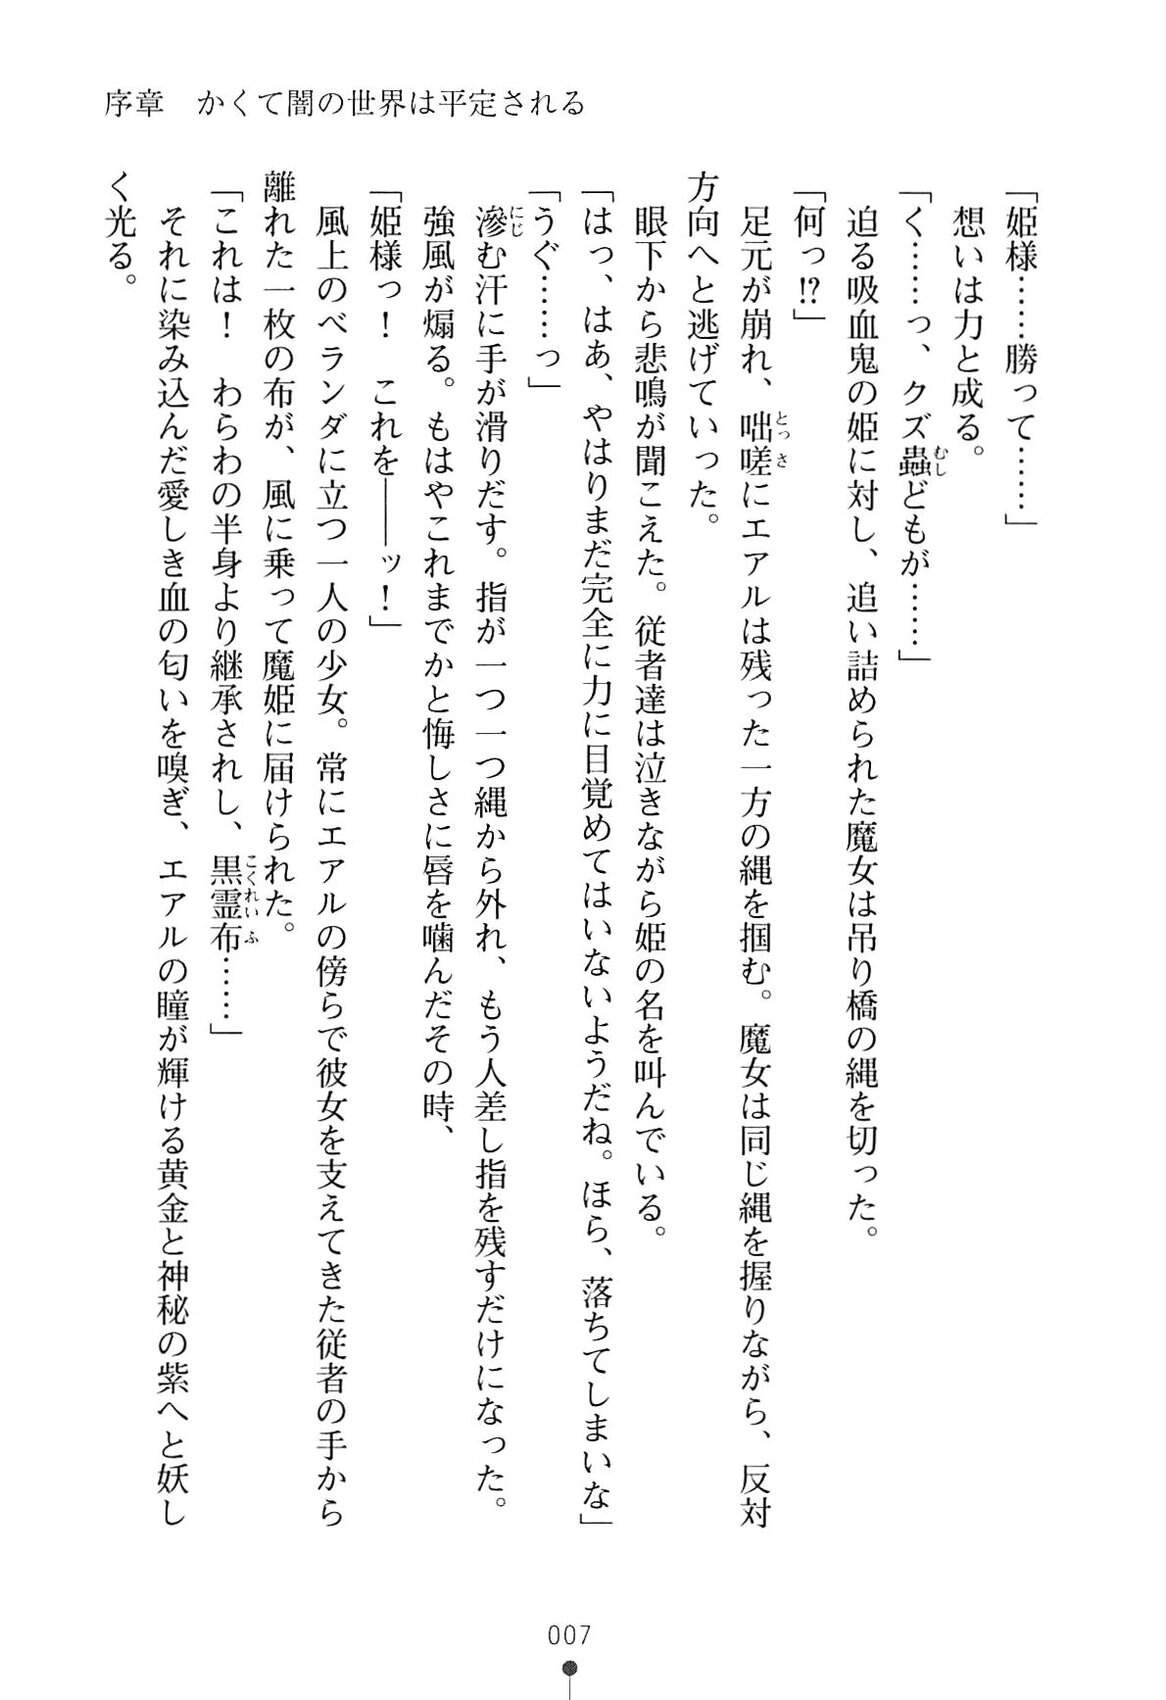 序章　かくて闇の世界は平定される
「姫様……勝って……」
　想いは力と成る。
「く……っ、クズ蟲どもが……」
むし
　迫る吸血鬼の姫に対し、追い詰められた魔女は吊り橋の縄を切った。
「何っ!?」
　足元が崩れ、咄嗟にエアルは残った一方の縄を掴む。魔女は同じ縄を握りながら、反対
とっさ
方向へと逃げていった。
　眼下から悲鳴が聞こえた。従者達は泣きながら姫の名を叫んでいる。
「はっ、はぁ、やはりまだ完全に力に目覚めてはいないようだね。ほら、落ちてしまいな」
「うぐ……っ」
　滲む汗に手が滑りだす。指が一つ一つ縄から外れ、もう人差し指を残すだけになった。
にじ
　強風が煽る。もはやこれまでかと悔しさに唇を噛んだその時、
「姫様っ！　これを――ッ！」
　風上のベランダに立つ一人の少女。常にエアルの傍らで彼女を支えてきた従者の手から
離れた一枚の布が、風に乗って魔姫に届けられた。
「これは！　わらわの半身より継承されし、黒霊布……」
こくれいふ
　それに染み込んだ愛しき血の匂いを嗅ぎ、エアルの瞳が輝ける黄金と神秘の紫へと妖し
く光る。
007